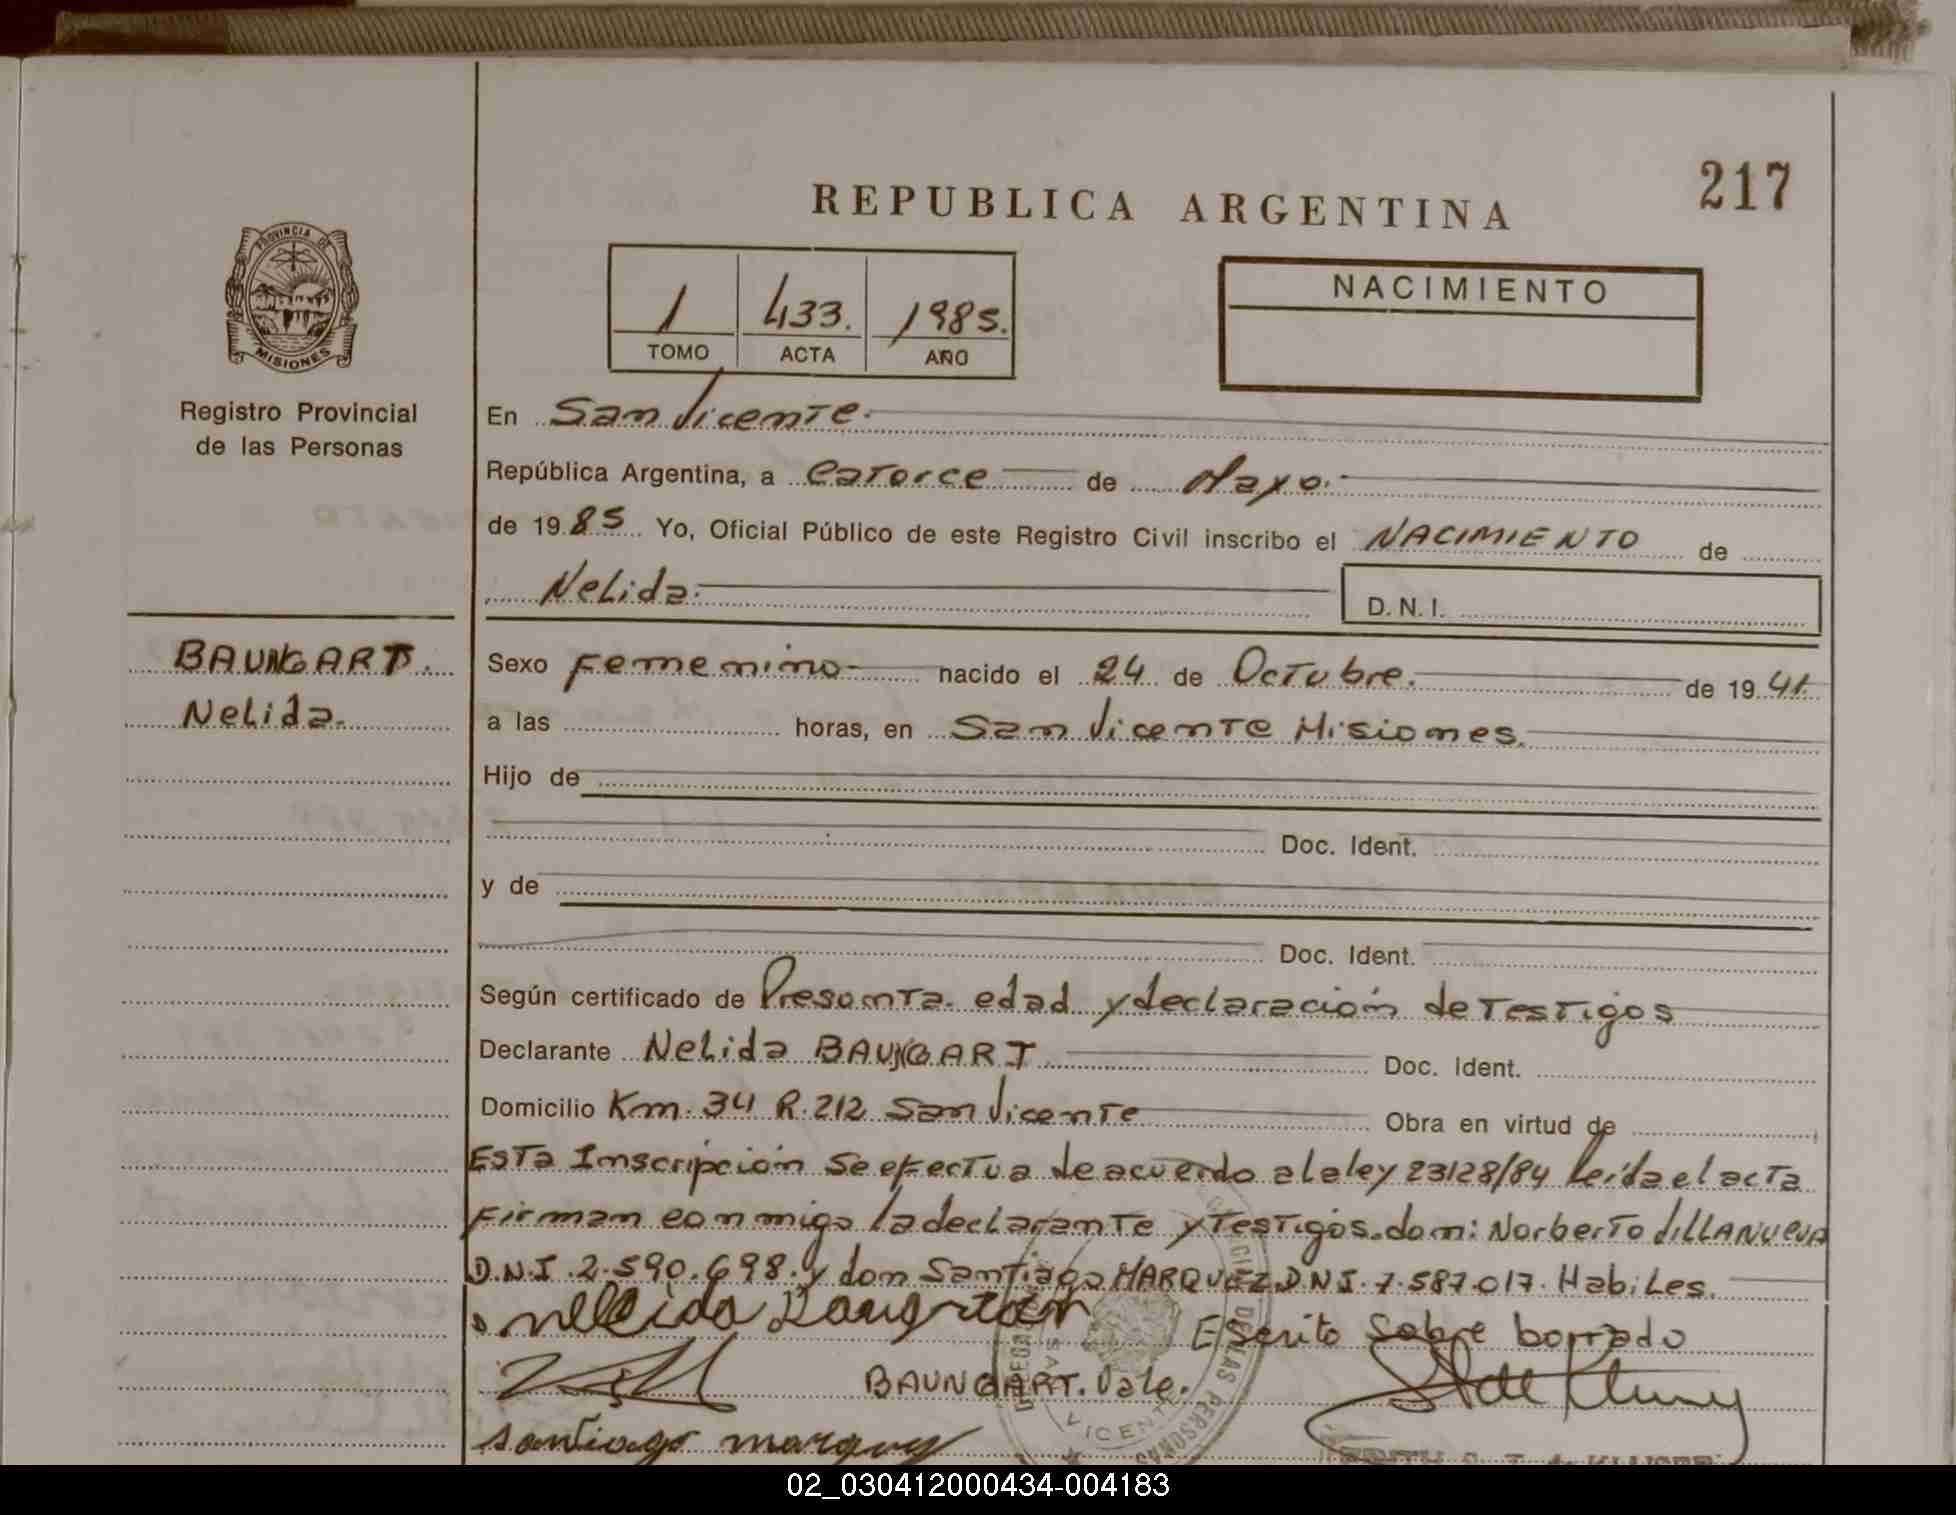 217
REPUBLICA ARGENTINA
PROVINCIA DE
MISIONES
Registro Provincial
de las Personas
1 433. 1985.
TOMO ACTA AÑO
NACIMIENTO
En San Vicente.
República Argentina, a Catorce de Mayo.
de 19 85 Yo, Oficial Público de este Registro Civil inscribo el NACIMIENTO de
Nelida.
D.N.I.
BAUNGART.
Nelida.
Sexo Femenino nacido el 24 de Octubre. de 19 41.
a las horas, en San Vicente Misiones.
Hijo de
Doc. Ident.
y de
Doc. Ident.
Según certificado de Presunta edad y declaración de Testigos
Declarante Nelida BAUNGART Doc. Ident.
Domicilio Km. 34 R. 212 San Vicente Obra en virtud de
Esta Inscripción se efectua de acuerdo a la ley 23128/84 Leida el acta
Firman conmigo la declarante y Testigos. don: Norberto VILLANUEVA
D.N.I. 2.590.698. y don Santiago MARQUEZ D.N.I. 7.587.017. Habiles.
Escrito sobre borrado
BAUNGART. Vale.
santiago marquez
02_030412000434-004183